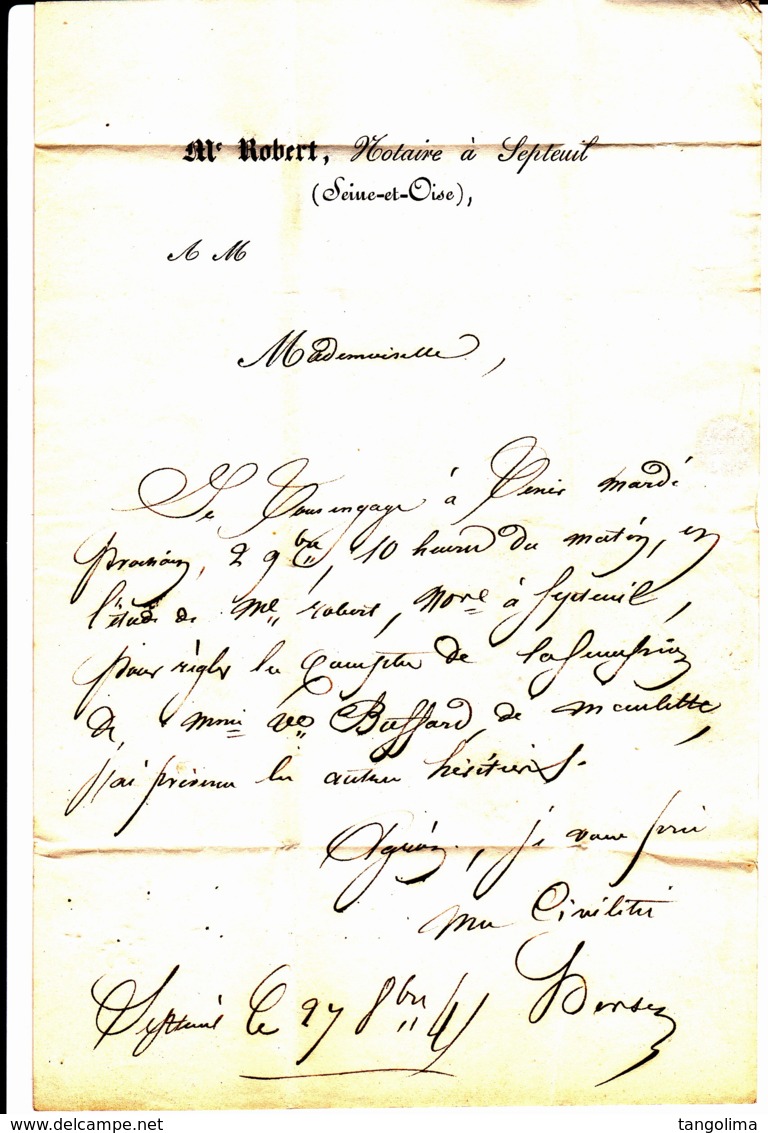 Me Robert, Notaire à Septeuil
(Seine-et-Oise),
A M
Mademoiselle,
Je vous engage à venir mardi
prochain, 2 9bre, 10 heures du matin, en
l'étude de Me robert, Nore à Septeuil,
pour régler les Comptes de la Succession
de mme Ve Buffard, de maulette,
j'ai prévenu les autres héritiers.
Agréez, je vous prie
mes Civilités
Septeuil Ce 27 8bre
delcampe.net
tangolima